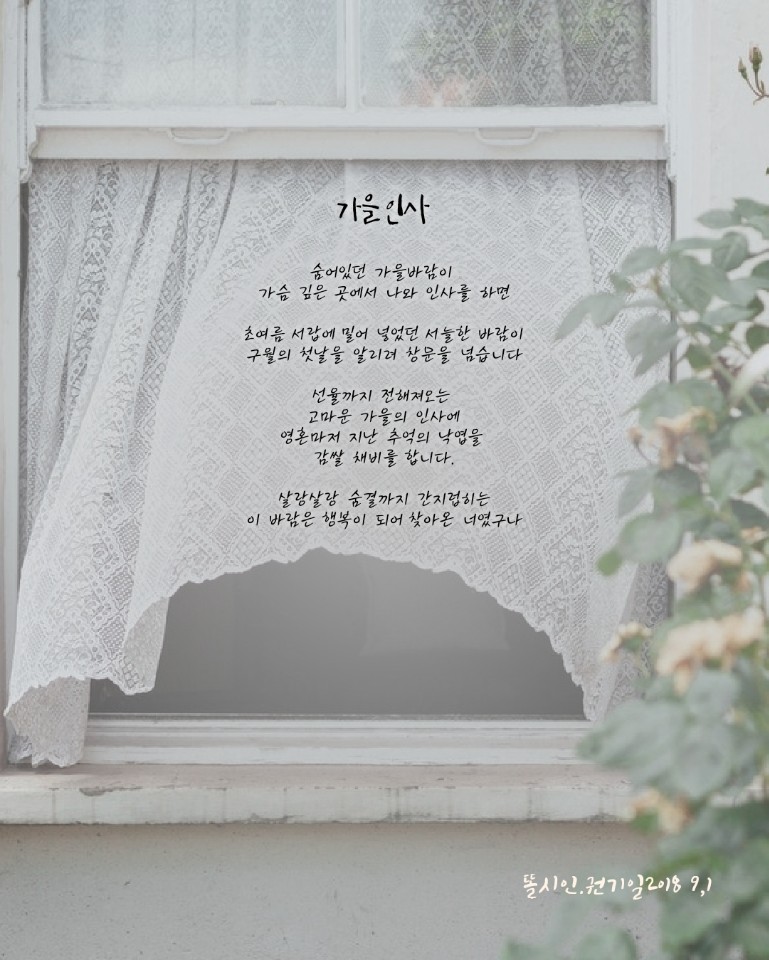 가을인사
숨어있던 가을바람이
가슴 깊은 곳에서 나와 인사를 하면
초여름 서랍에 밀어 넣었던 서늘한 바람이
구월의 첫날을 알리려 창문을 넘습니다
선율까지 전해져오는
고마운 가을의 인사에
영혼마저 지난 추억의 낙엽을
감쌀 채비를 합니다.
살랑살랑 숨결까지 간지럽히는
이 바람은 행복이 되어 찾아온 너였구나
똘시인.권기일2018 9,1